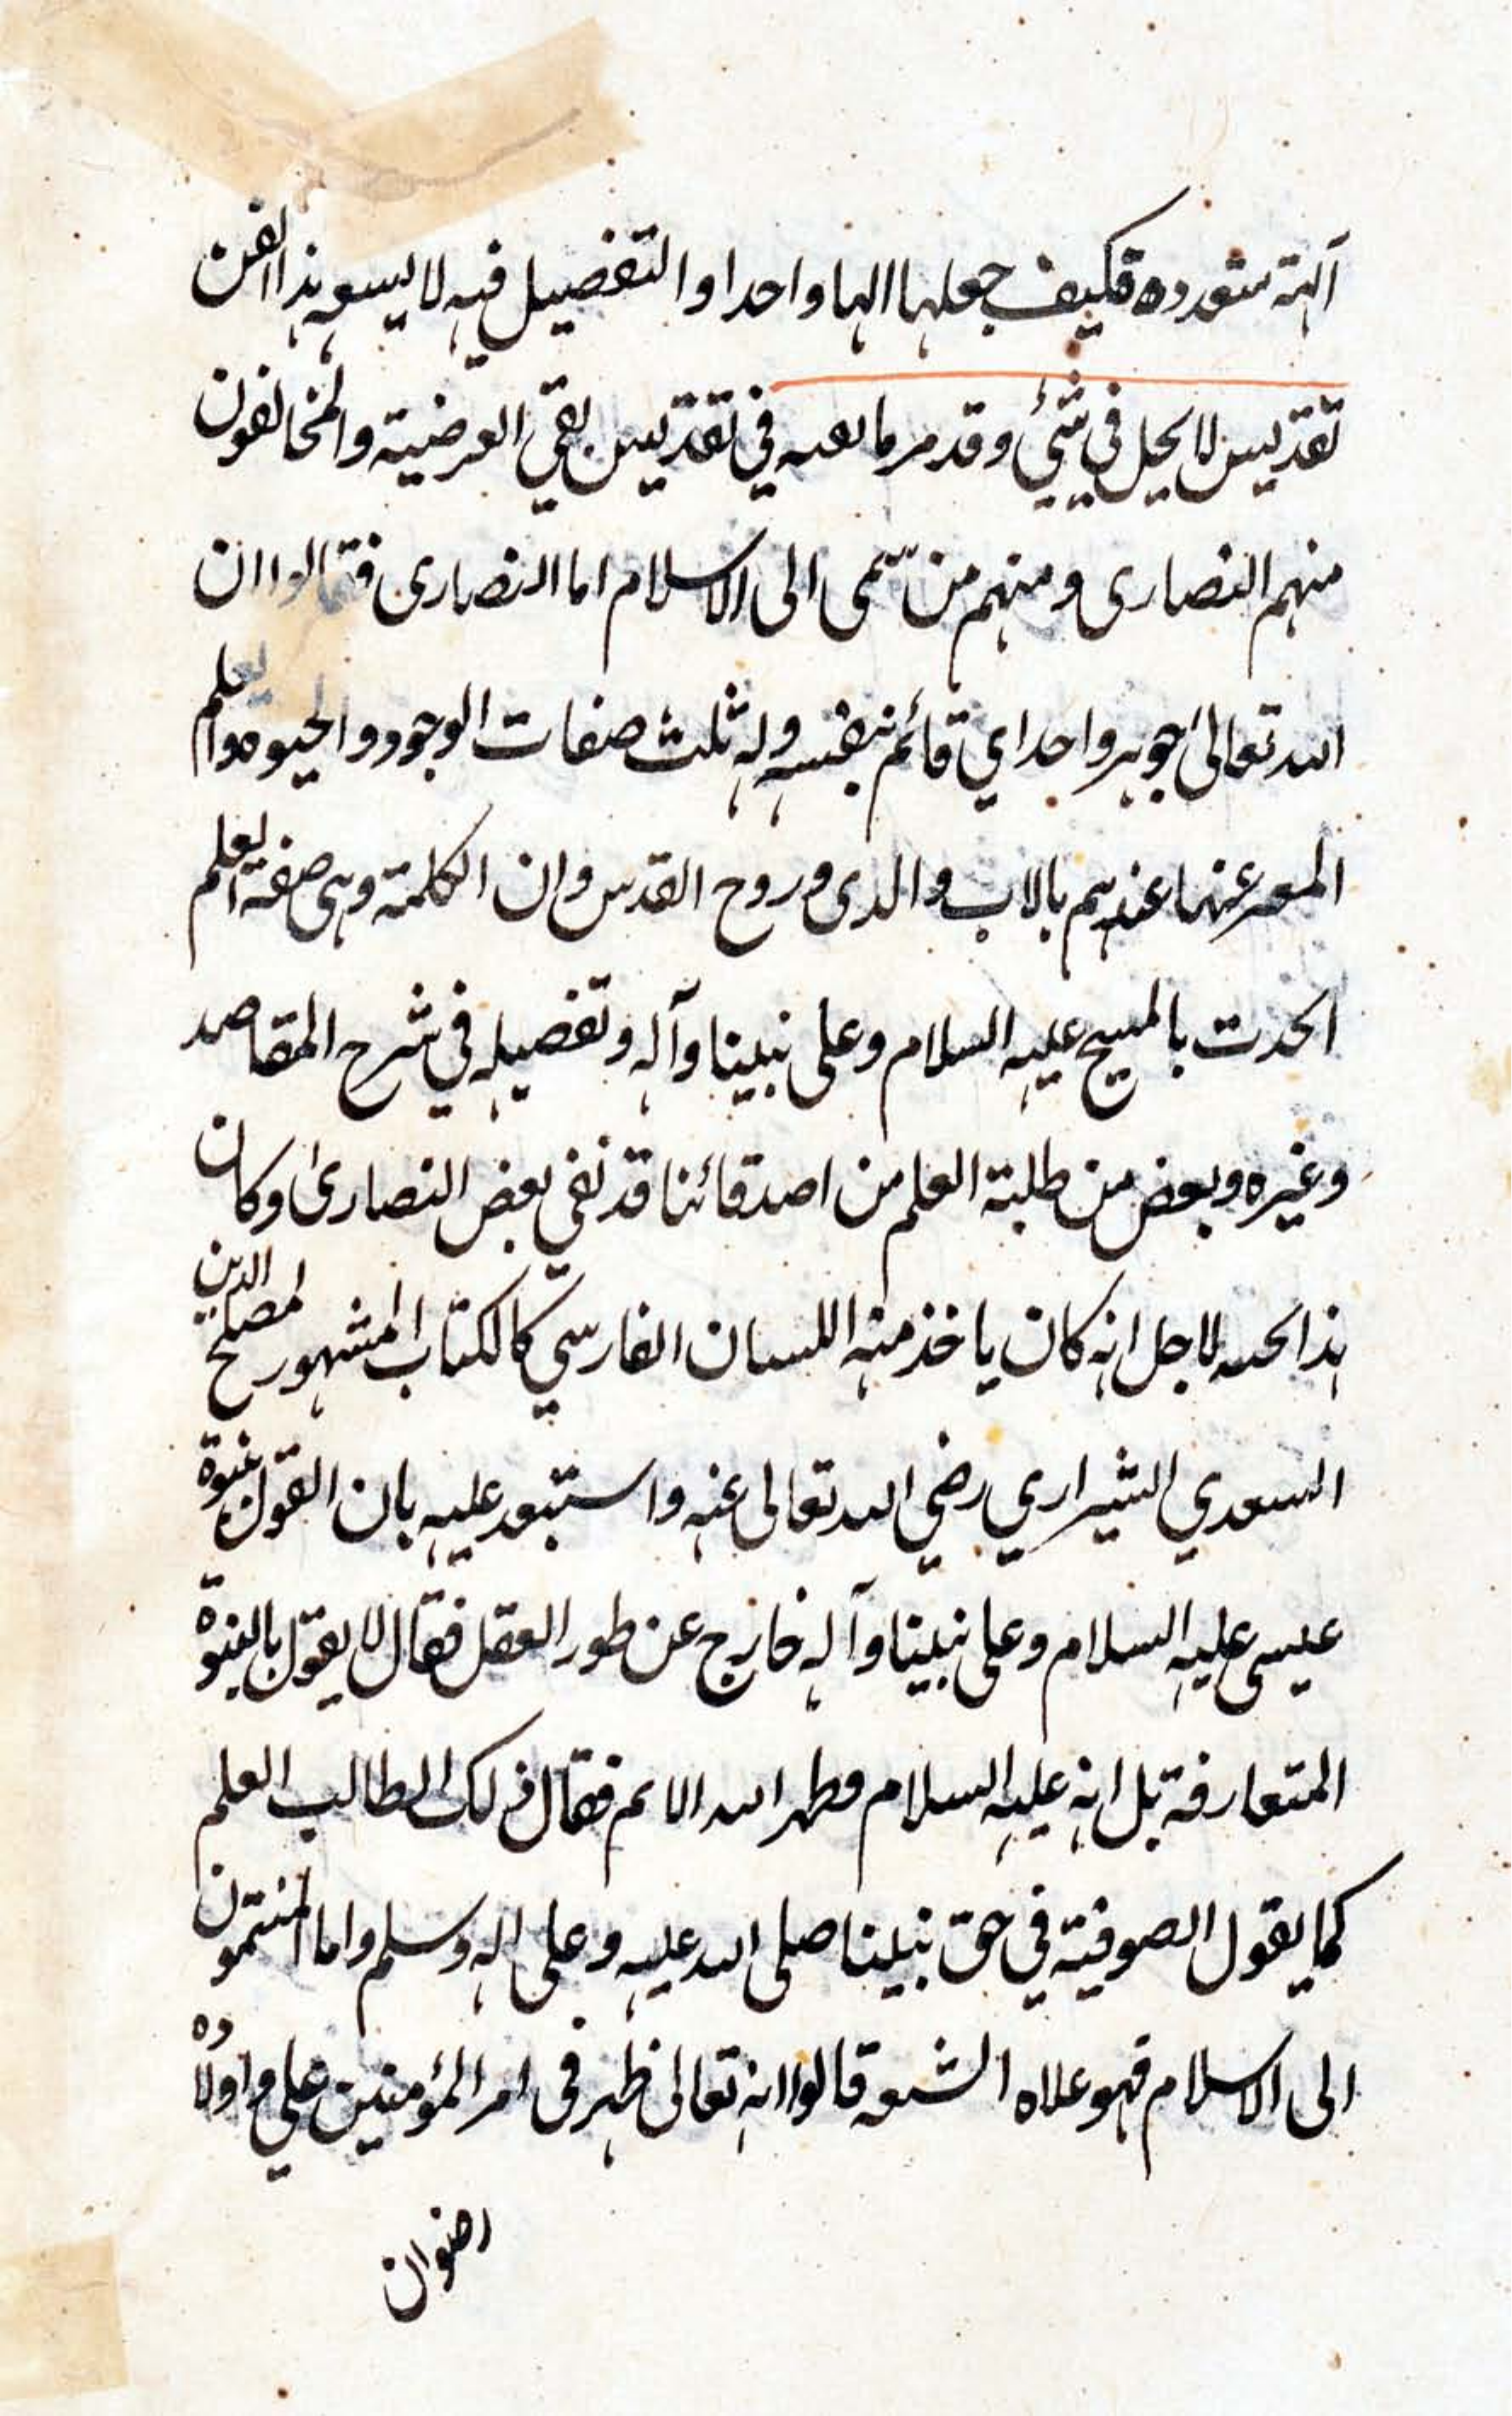 آلهة متعدده فكيف جعلها الها واحدا والتفضيل فيه لا يسعه هذا الفن
تقديس لا يحل في شيء وقد مر ما فيه في تقديس بقي العرضية والمخالفون
منهم النصارى ومنهم من ينتمي الى الاسلام اما النصارى فقالوا ان
الله تعالى جوهر واحد اي قائم بنفسه وله ثلث صفات الوجود والحيوه والعلم
المعبر عنها عندهم بالاب والدى وروح القدس وان الكلمة وهي صفة العلم
اتحدت بالمسيح عليه السلام وعلى نبينا وآله وتفصيله في شرح المقاصد
وغيره وبعض من طلبة العلم من اصدقائنا قد لقي بعض النصارى وكان
هذا لاجل انه كان ياخذ منه اللسان الفارسي كالكتاب المشهور لمصلح الدين
السعدي الشيرازي رضي الله تعالى عنه واستبعد عليه بان القول ببنوة
عيسى عليه السلام وعلى نبينا وآله خارج عن طور العقل فقال لا يقول بالبنوة
المتعارفة بل انه عليه السلام مظهر الله الاتم فقال ذلك الطالب العلم
كما يقول الصوفية في حق نبينا صلى الله عليه وعلى اله وسلم واما المنتمون
الى الاسلام فهو غلاه الشيعة قالوا انه تعالى ظهر في امر المؤمنين علي واولاده
رضوان